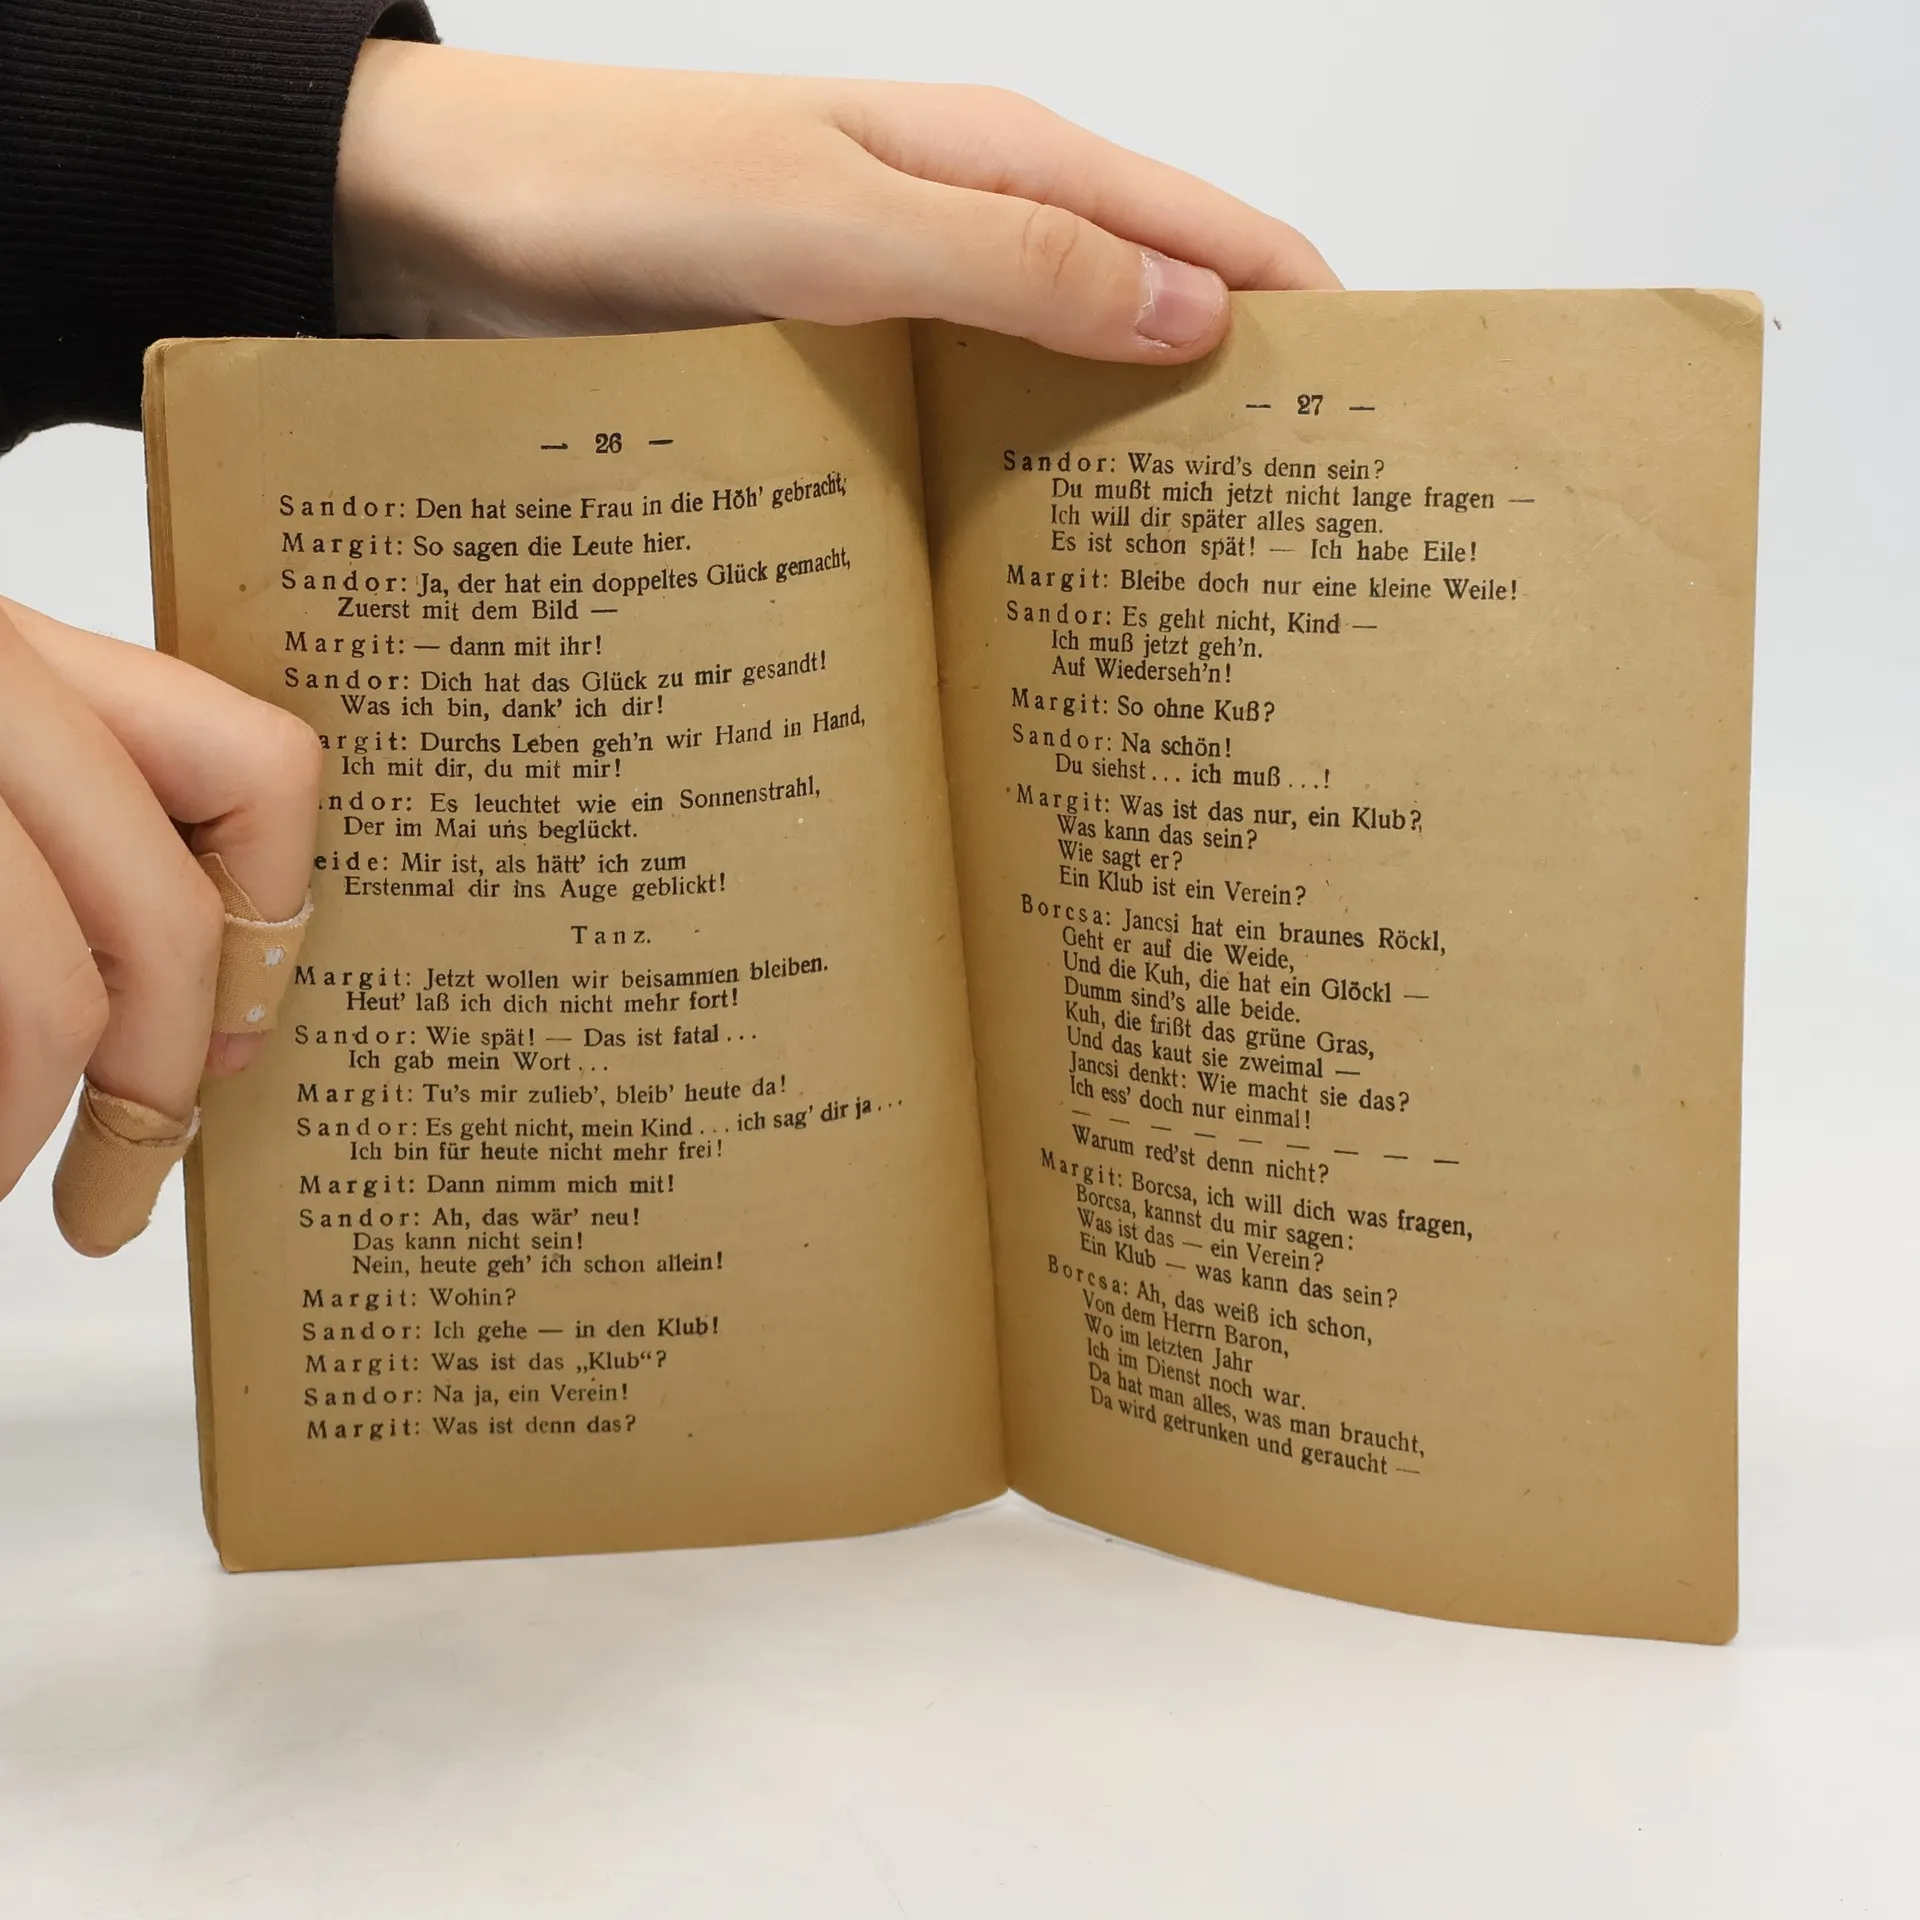 — 26 —
Sandor: Den hat seine Frau in die Höh' gebracht,
Margit: So sagen die Leute hier.
Sandor: Ja, der hat ein doppeltes Glück gemacht,
Zuerst mit dem Bild —
Margit: — dann mit ihr!
Sandor: Dich hat das Glück zu mir gesandt!
Was ich bin, dank' ich dir!
argit: Durchs Leben geh'n wir Hand in Hand,
Ich mit dir, du mit mir!
ndor: Es leuchtet wie ein Sonnenstrahl,
Der im Mai uns beglückt.
eide: Mir ist, als hätt' ich zum
Erstenmal dir ins Auge geblickt!
Tanz.
Margit: Jetzt wollen wir beisammen bleiben.
Heut' laß ich dich nicht mehr fort!
Sandor: Wie spät! — Das ist fatal...
Ich gab mein Wort...
Margit: Tu's mir zulieb', bleib' heute da!
Sandor: Es geht nicht, mein Kind... ich sag' dir ja...
Ich bin für heute nicht mehr frei!
Margit: Dann nimm mich mit!
Sandor: Ah, das wär' neu!
Das kann nicht sein!
Nein, heute geh' ich schon allein!
Margit: Wohin?
Sandor: Ich gehe — in den Klub!
Margit: Was ist das „Klub“?
Sandor: Na ja, ein Verein!
Margit: Was ist denn das?
— 27 —
Sandor: Was wird's denn sein?
Du mußt mich jetzt nicht lange fragen —
Ich will dir später alles sagen.
Es ist schon spät! — Ich habe Eile!
Margit: Bleibe doch nur eine kleine Weile!
Sandor: Es geht nicht, Kind —
Ich muß jetzt geh'n.
Auf Wiederseh'n!
Margit: So ohne Kuß?
Sandor: Na schön!
Du siehst... ich muß...!
Margit: Was ist das nur, ein Klub?
Was kann das sein?
Wie sagt er?
Ein Klub ist ein Verein?
Borcsa: Jancsi hat ein braunes Röckl,
Geht er auf die Weide,
Und die Kuh, die hat ein Glöckl —
Dumm sind's alle beide.
Kuh, die frißt das grüne Gras,
Und das kaut sie zweimal —
Jancsi denkt: Wie macht sie das?
Ich ess' doch nur einmal!
— — — — — — — — —
Warum red'st denn nicht?
Margit: Borcsa, ich will dich was fragen,
Borcsa, kannst du mir sagen:
Was ist das — ein Verein?
Ein Klub — was kann das sein?
Borcsa: Ah, das weiß ich schon,
Von dem Herrn Baron,
Wo im letzten Jahr
Ich im Dienst noch war.
Da hat man alles, was man braucht,
Da wird getrunken und geraucht —